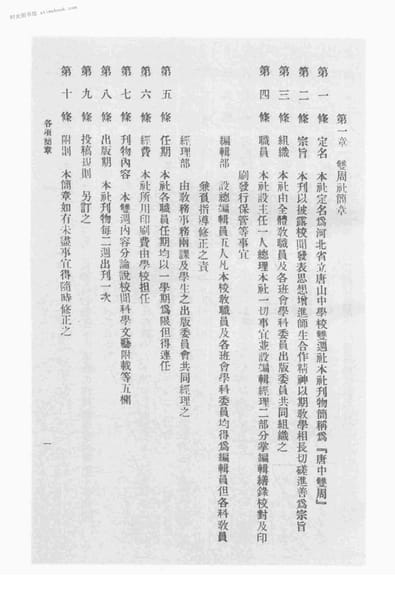 时光图书馆 stimebook.com
第一章 雙周社簡章
第一條 定名 本社定名爲河北省立唐山中學校雙週社本社刊物簡稱爲『唐中雙周』
第二條 宗旨 本刊以披露校聞發表思想增進師生合作精神以期教學相長切磋進善爲宗旨
第三條 組織 本社由全體教職員及各班會學科委員出版委員共同組織之
第四條 職員 本社設主任一人總理本社一切事宜兼設編輯經理二部分掌編輯繕錄校對及印
刷發行保管等事宜
編輯部 設總編輯員五人凡本校教職員及各班會學科委員均得爲編輯員但各科教員
兼負指導修正之責
經理部 由教務事務兩課及學生之出版委員會共同經理之
第五條 任期 本社各職員任期均以一學期爲限但得連任
第六條 經費 本社所用印刷費由學校担任
第七條 刊物內容 本雙週內容分論說校聞科學文藝附載等五欄
第八條 出版期 本社刊物每二週出刊一次
第九條 投稿規則 另訂之
第十條 附則 本簡章如有未盡事宜得隨時修正之
各項簡章
一